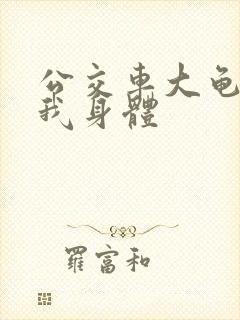 公交車大龟
我身體
羅富和